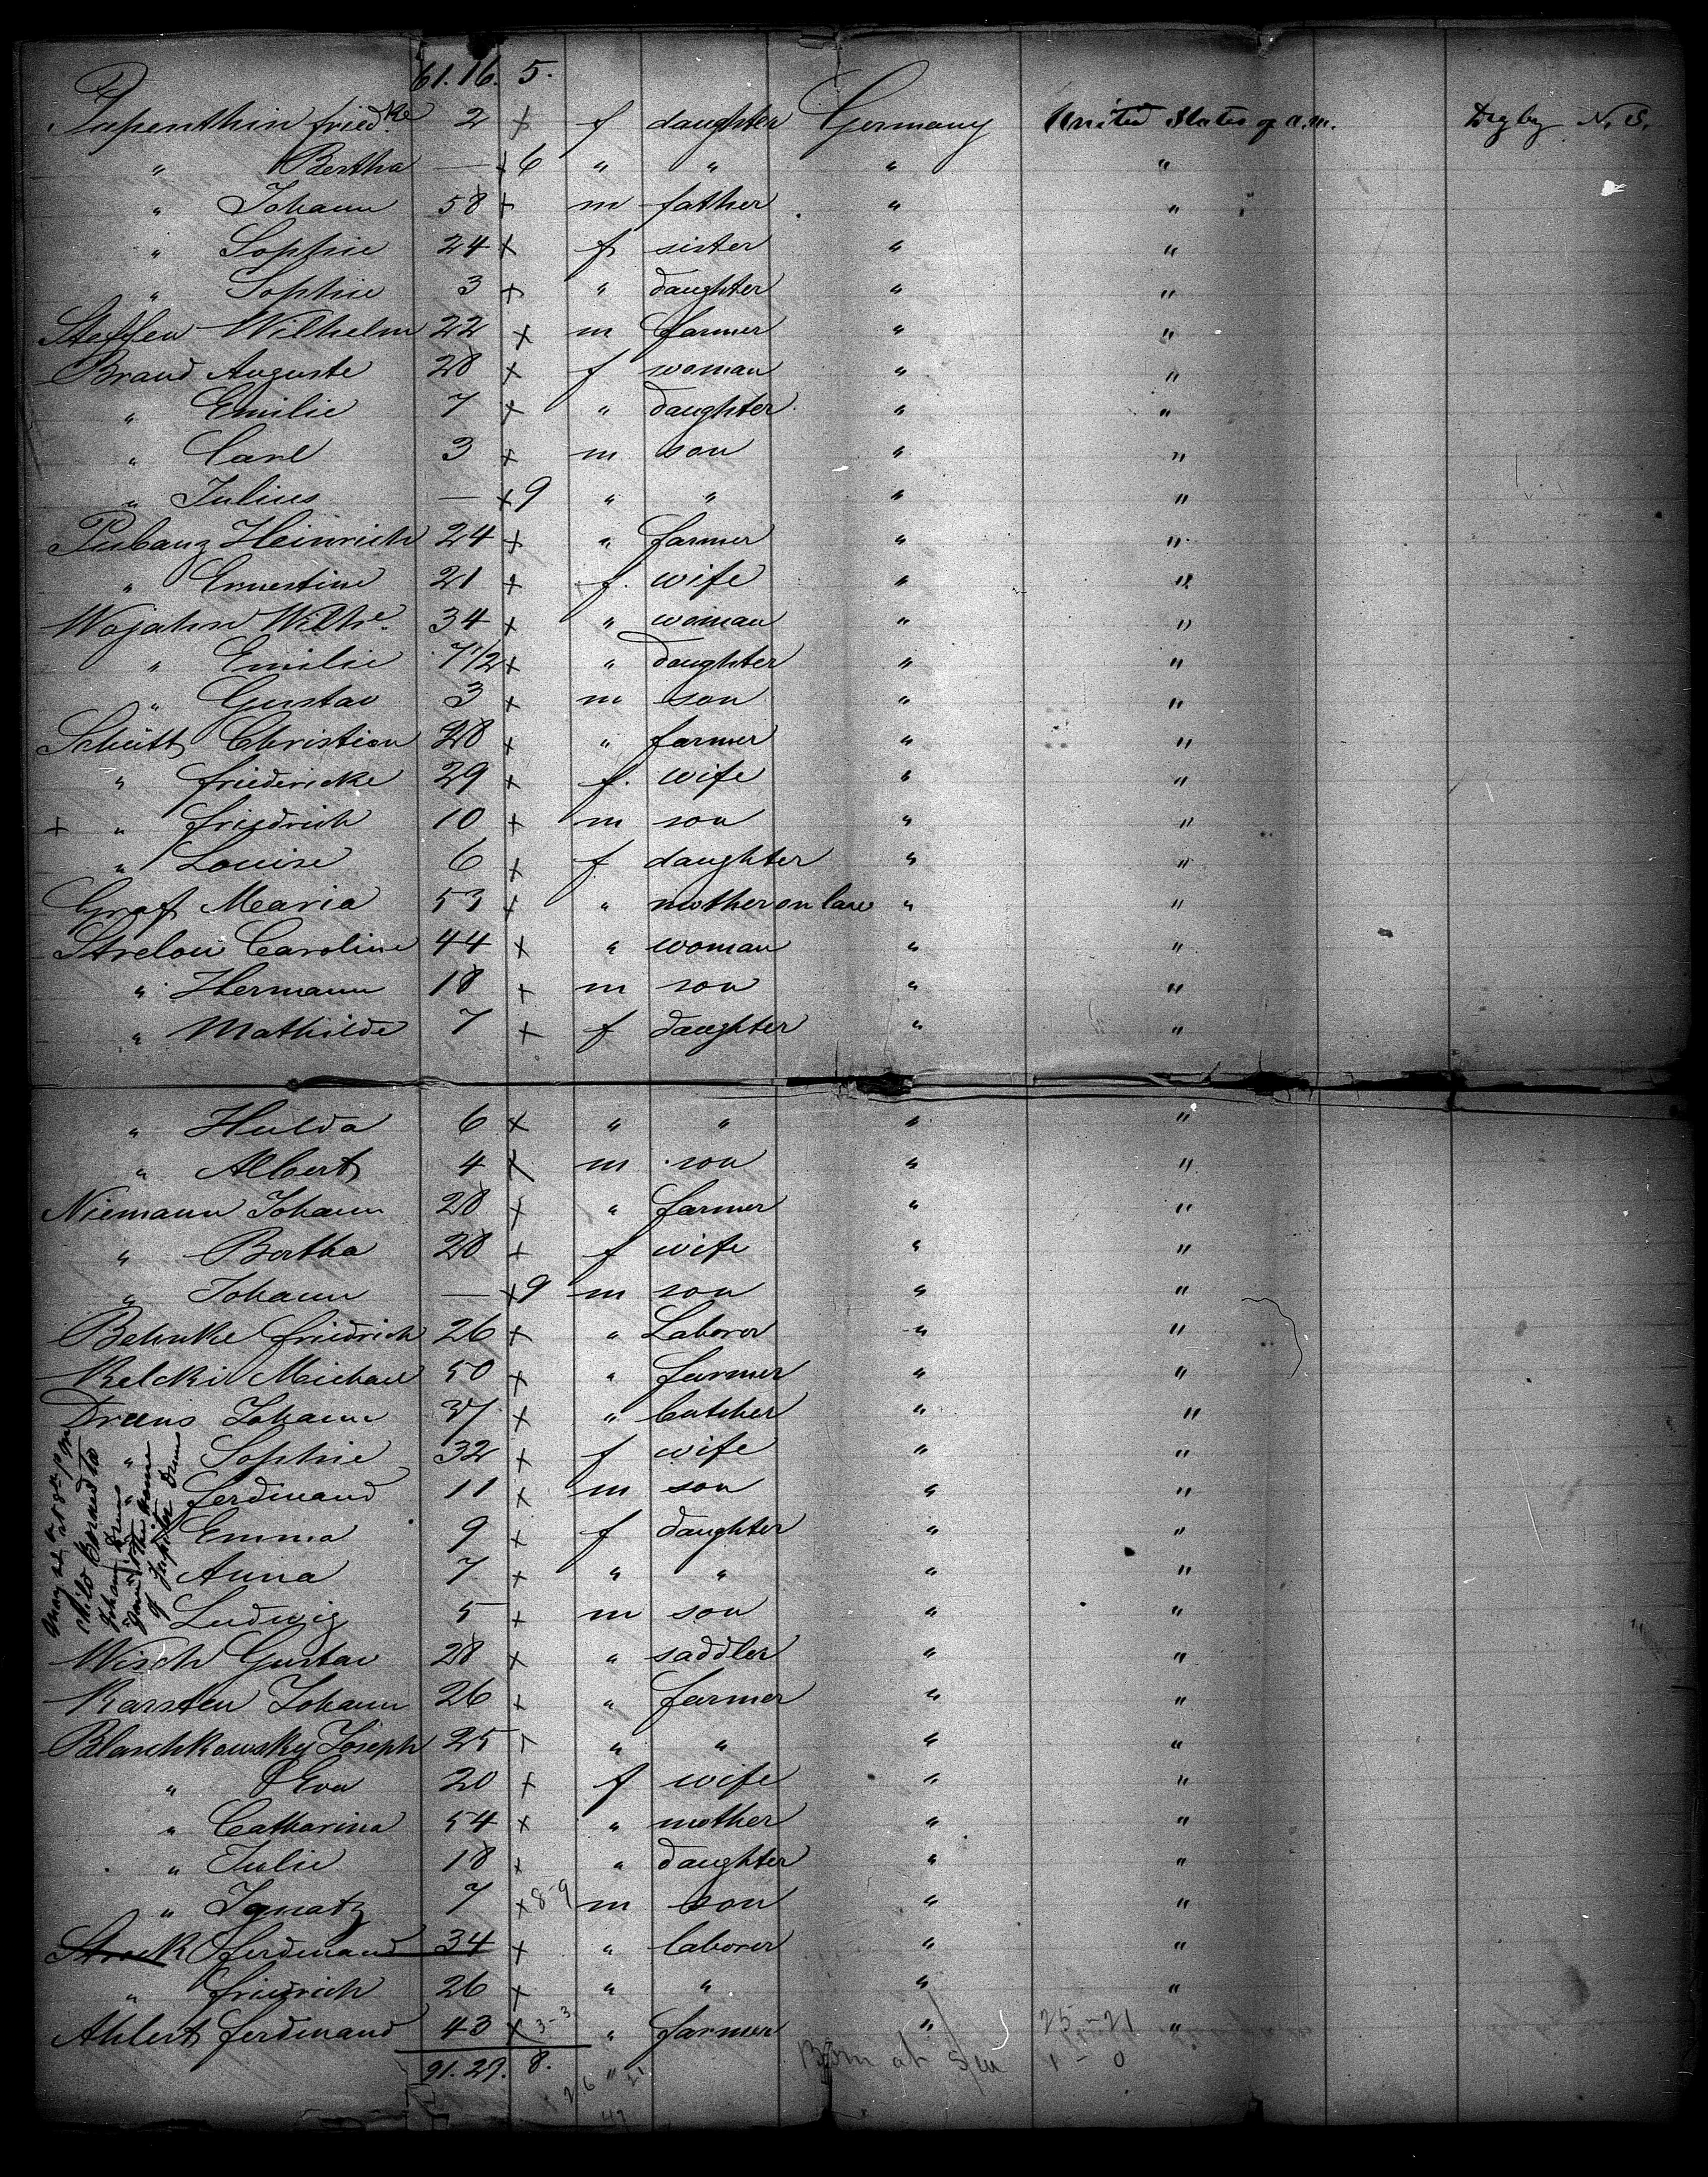 61. 16. 5.
Papenthin Friedke 2 x f daughter Germany United States of A.m. Digby N. S.
" Bertha — x 6 " " " "
" Johann 58 x m father " "
" Sophie 24 x f sister " "
" Sophie 3 x " daughter " "
Steffen Wilhelm 22 x m farmer " "
Brand Auguste 28 x f woman " "
" Emilie 7 x " daughter " "
" Carl 3 x m son " "
" Julius — x 9 " " " "
Pubanz Heinrich 24 x " farmer " "
" Ernestine 21 x f. wife " "
Wojahn Wilhe. 34 x " woman " "
" Emilie 7 1/2 x " daughter " "
" Gustav 3 x m son " "
Schütt Christian 28 x " farmer " "
" Friedericke 29 x f. wife " "
x " Friedrich 10 x m son " "
" Louise 6 x f. daughter " "
Graf Maria 53 x " mother on law " "
Strelow Caroline 44 x " woman " "
" Hermann 18 x m son " "
" Mathilde 7 x f daughter " "
" Hulda 6 x " " " "
" Albert 4 x m son " "
Niemann Johann 28 x " farmer " "
" Bertha 28 x f wife " "
" Johann — x 9 m son " "
Behnke Friedrich 26 x " Laborer " "
Kelckir Michael 50 x " farmer " "
Drews Johann 37 x " butcher " "
" Sophie 32 x f wife " "
" Ferdinand 11 x m son " "
Emma 9 x f daughter " "
Anna 7 x " " " "
Ludwig 5 x m son " "
child Born to
Johann Drews
of Jupiter Drews
Wisch Gustav 28 x " saddler " "
Karsten Johann 26 x " farmer " "
Blaschkowsky Joseph 25 x " " " "
" Eva 20 x f wife " "
" Catharina 54 x " mother " "
" Julie 18 x " daughter " "
" Ignatz 7 x 8-9 m son " "
Strock Ferdinand 34 x " laborer " "
" Friedrich 26 x " " " "
Ahlert Ferdinand 43 x 3-3 " farmer " 25-21 "
91. 29. 8. " Born at Sea 1 - 0
26 21
47